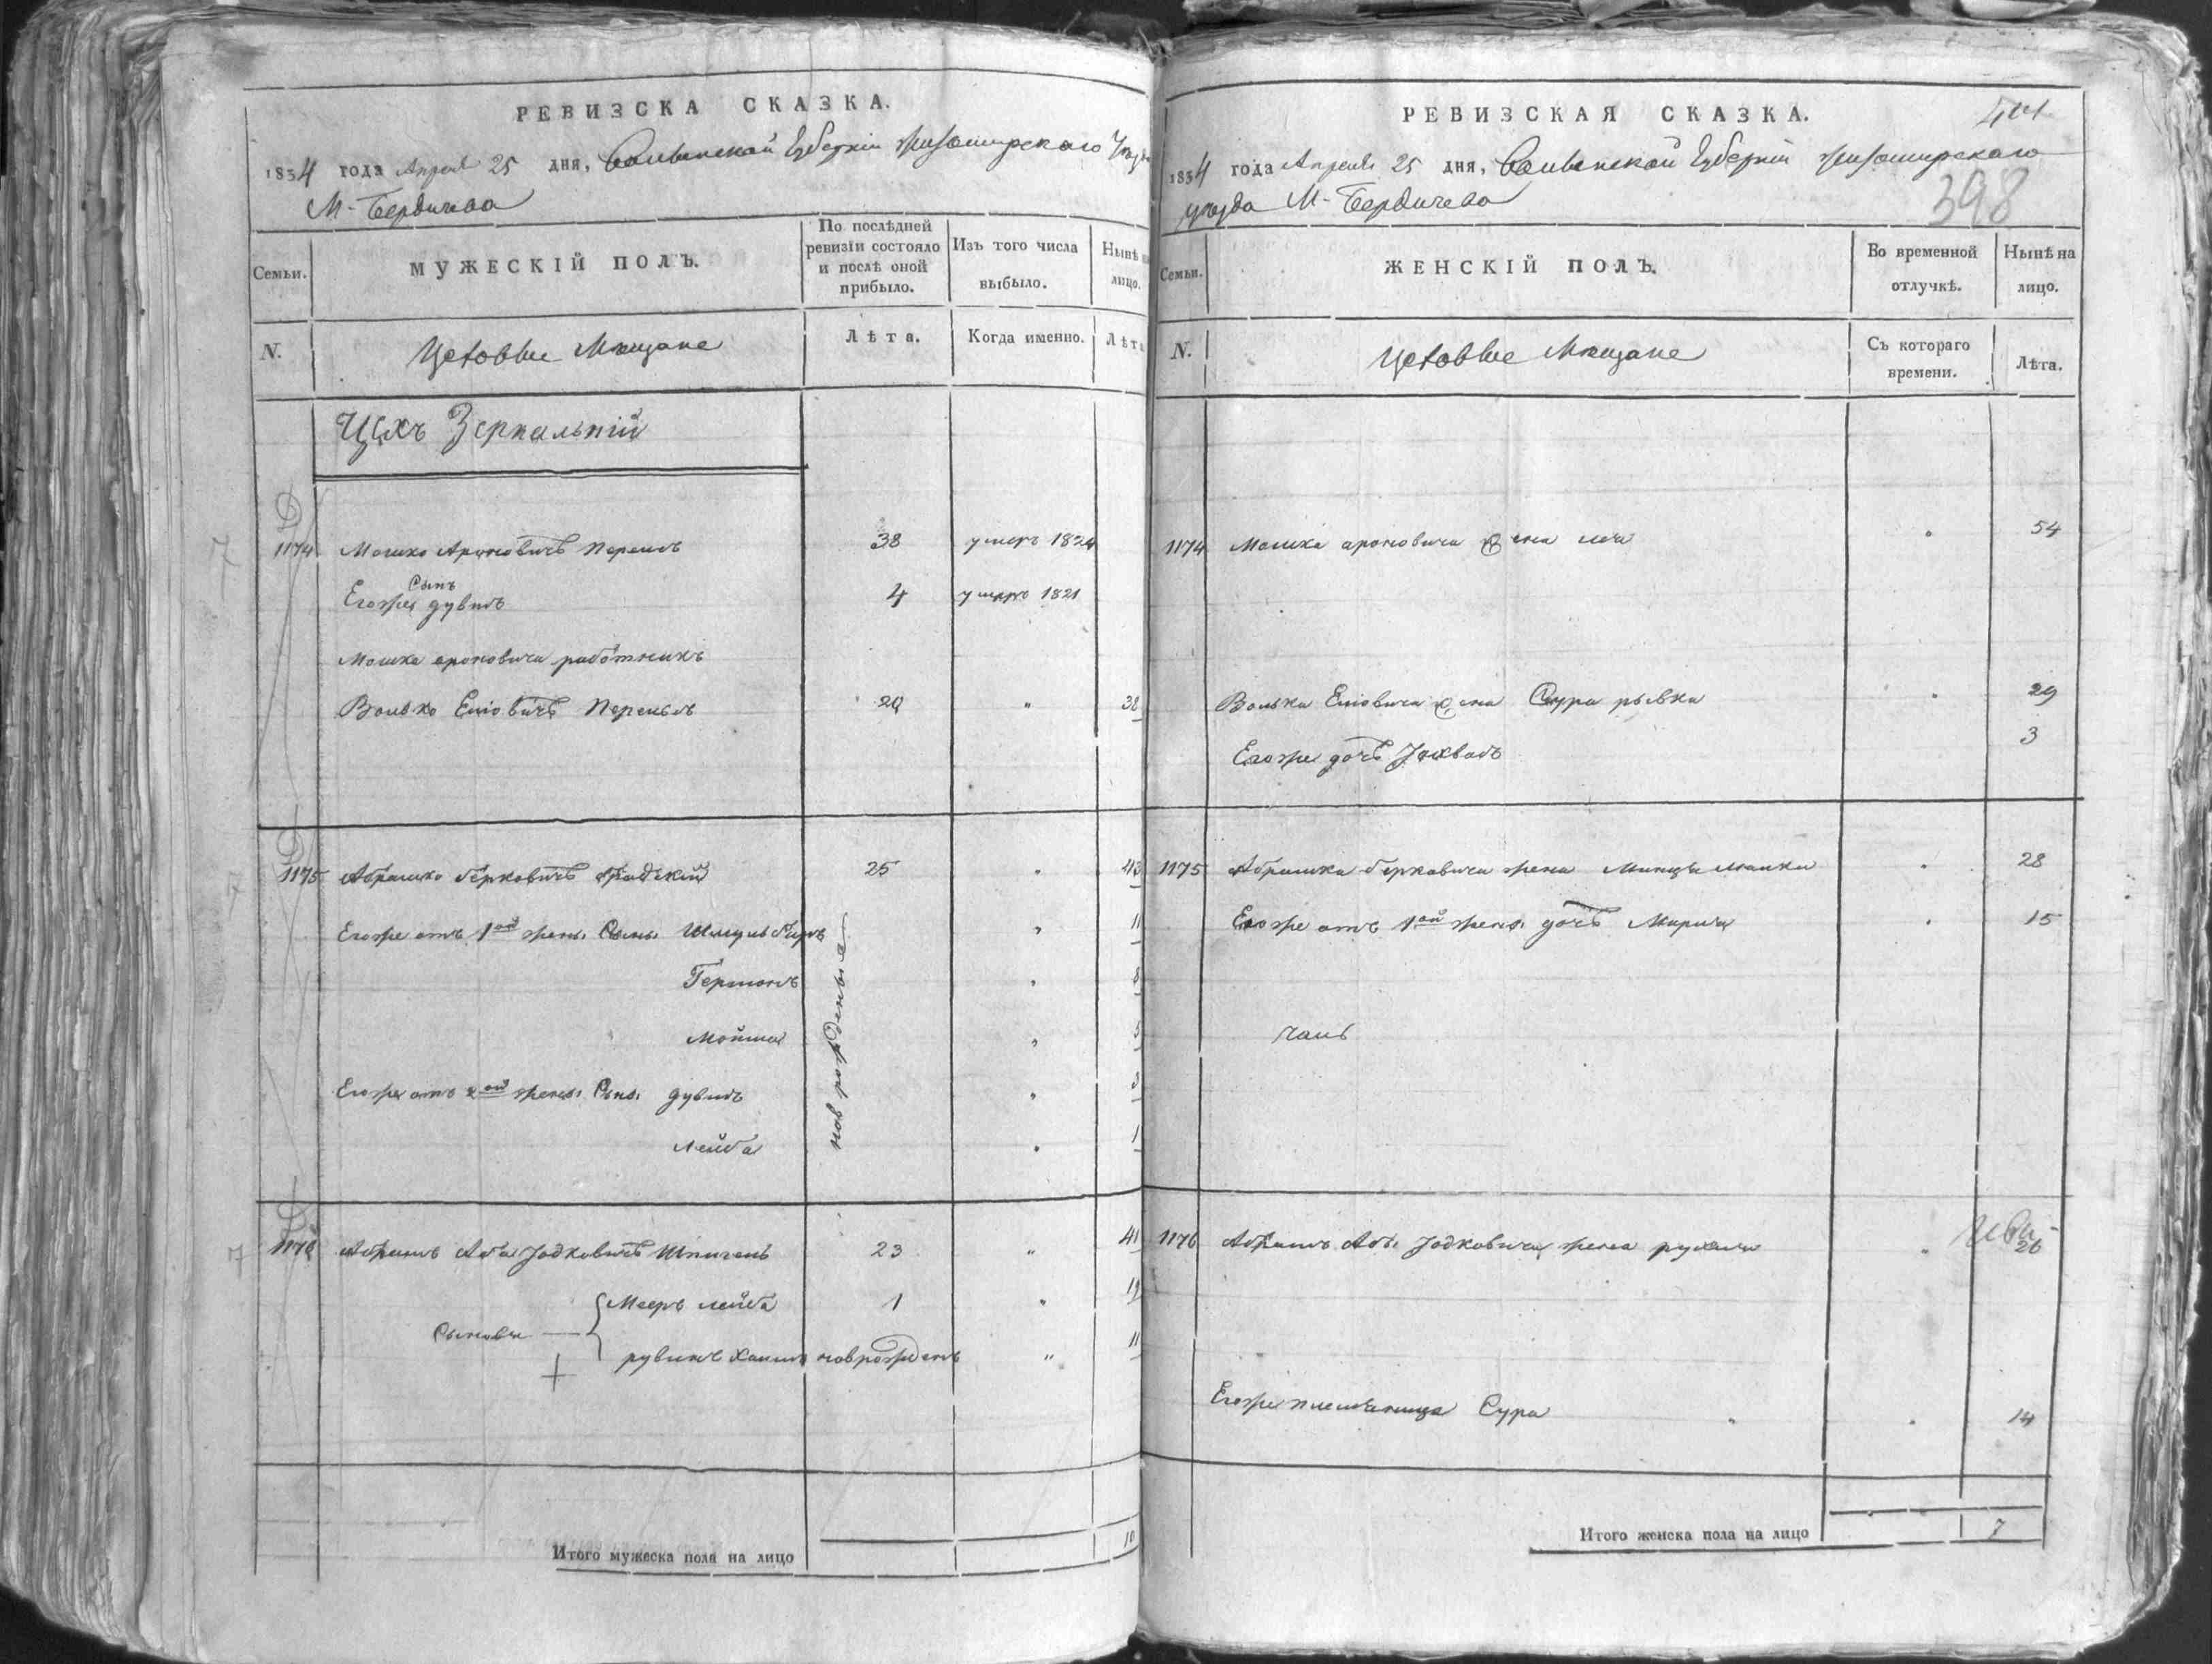 РЕВИЗСКА СКАЗКА.
1834 года Апреля 25 дня, Волынской Губернiи Житомирского Уезда
М. Бердичева
Семьи.
МУЖЕСКIЙ ПОЛЪ.
По послѣдней ревизiи состояло и послѣ оной прибыло.
Изъ того числа выбыло.
Нынѣ на лицо.
N.
Цеховые Мещане
Лѣта.
Когда именно.
Лѣта
Цехъ Зеркальнiй
1174 Мошко Ароновичъ 38 умеръ 1824
Сынъ
Егоже Дувидъ 4 умеръ 1821
Мошка ароновича работникъ
Волько 20 " 38
1175 Абрашко берковичъ 25 " 43
Егоже отъ 1ой жены Сынъ Шмуль беръ " 11
Гершонъ " 8
Мойша " 5
Егоже отъ 2ой жены Сынъ дувидъ " 3
Лейба " 1
новорожденые
1176 Абрамъ Аба Іодковичъ 23 " 41
Сыновья
Мееръ лейба 1 " 19
рувинъ Хаимъ новрожденъ " 11
Итого мужеска пола на лицо 10
РЕВИЗСКАЯ СКАЗКА.
1834 года Апреля 25 дня, Волынской Губернiи Житомирскаго
398
уезда М. Бердичева
Семьи.
ЖЕНСКIЙ ПОЛЪ.
Во временной отлучкѣ.
Нынѣ на лицо.
N.
Цеховые Мещане
Съ котораго времени.
Лѣта.
1174 Мошка ароновича жена лея " 54
Волька жена Сура рывка " 29
Егоже дочь 3
1175 Абрашка берковича жена " 28
Егоже отъ 1ой жены дочь " 15
1176 Абрамъ Абы Іодковича жена " 26
Егоже племяница Сура " 14
Итого женска пола на лицо 7